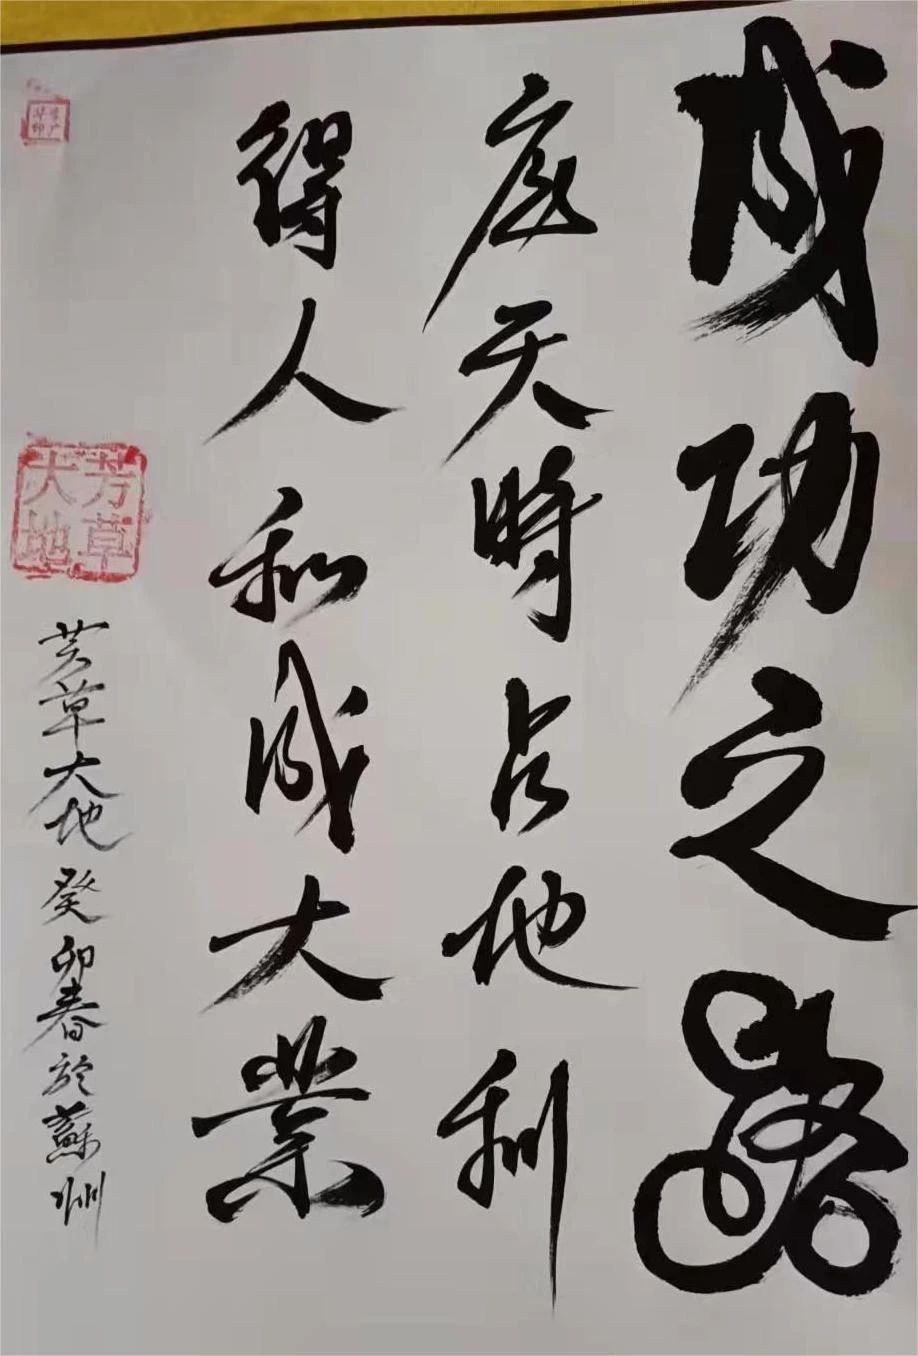 成功之路
应天時占地利
得人和成大業
芳草大地
芳草大地 癸卯春於蘇州